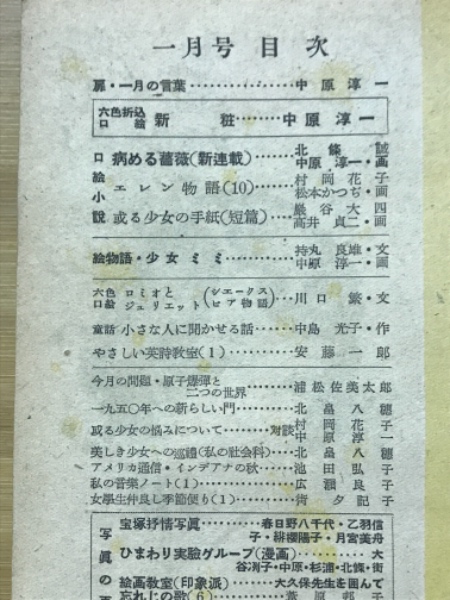 一月号 目次
扉・一月の言葉………………中原淳一
六色折込口絵 新粧………中原淳一
口絵小説
病める薔薇(新連載)……北條誠 中原淳一・画
エレン物語(10)………村岡花子 松本かつぢ・画
或る少女の手紙(短篇)……巌谷大四 高井貞二・画
絵物語・少女ミミ…………持丸良雄・文 中原淳一・画
六色口絵 ロミオとジュリエット(シエークスピア物語)……川口繁・文
童話 小さな人に聞かせる話……中島光子・作
やさしい英詩教室(1)…………安藤一郎
今月の問題・原子爆彈と
二つの世界………浦松佐美太郎
一九五〇年への新らしい門………北畠八穂
或る少女の悩みについて………対談 村岡花子 中原淳一
美しき少女への巡禮(私の社会科)……北畠八穂
アメリカ通信・インデアナの秋……池田弘子
私の音楽ノート(1)…………広瀬良子
女學生仲良し季節便り(1)………街夕記子
宝塚抒情写眞………春日野八千代・乙羽信
子・緋櫻陽子・月宮美舟
ひまわり実驗グループ(漫画)………大
谷洌子・中原・杉浦・北條・街
絵画教室(印象派)………大久保先生を囲んて
忘れじの歌(6)